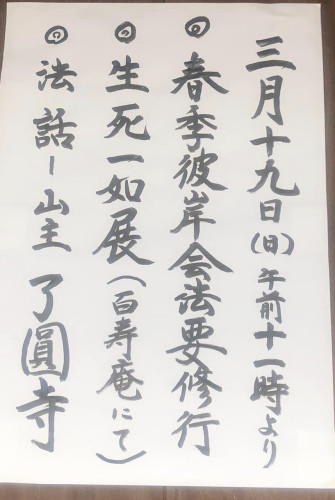 三月十九日(日)午前十一時より
◎春季彼岸会法要修行
◎生死一如展(百寿庵にて)
◎法話ー山主 了圓寺